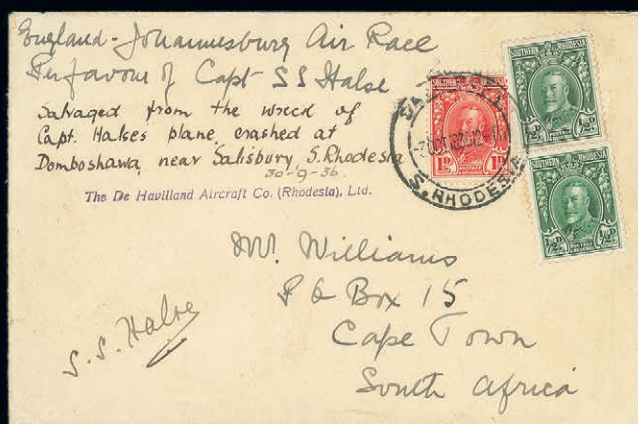 England - Johannesburg Air Race
Per favour of Capt SS Halse
Salvaged from the wreck of
Capt. Halses plane, crashed at
Domboshawa, near Salisbury, S. Rhodesia
30-9-36.
The De Havilland Aircraft Co. (Rhodesia), Ltd.
SOUTHERN RHODESIA
1D 1D
S. RHODESIA
SOUTHERN RHODESIA
½D ½D
SOUTHERN RHODESIA
½D ½D
POSTAGE & REVENUE
Mr. Williams
P O Box 15
Cape Town
South Africa
S.S. Halse